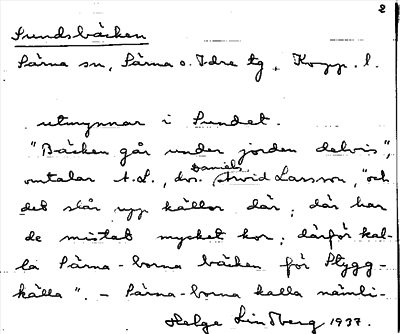 2
Sundsbäcken
Särna sn, Särna o. Idre tg, Kopp. l.
utmynnar i Sundet.
"Bäcken går under jorden delvis",
Daniels
omtalar A.L., dvs. Arvid Larsson, "och
det slår upp källor där; där har
de mistat mycket kor; därför kal-
la Särna-borna bäcken för Stygg-
källa". - Särna-borna kalla nämli-
Helge Lindberg 1937.